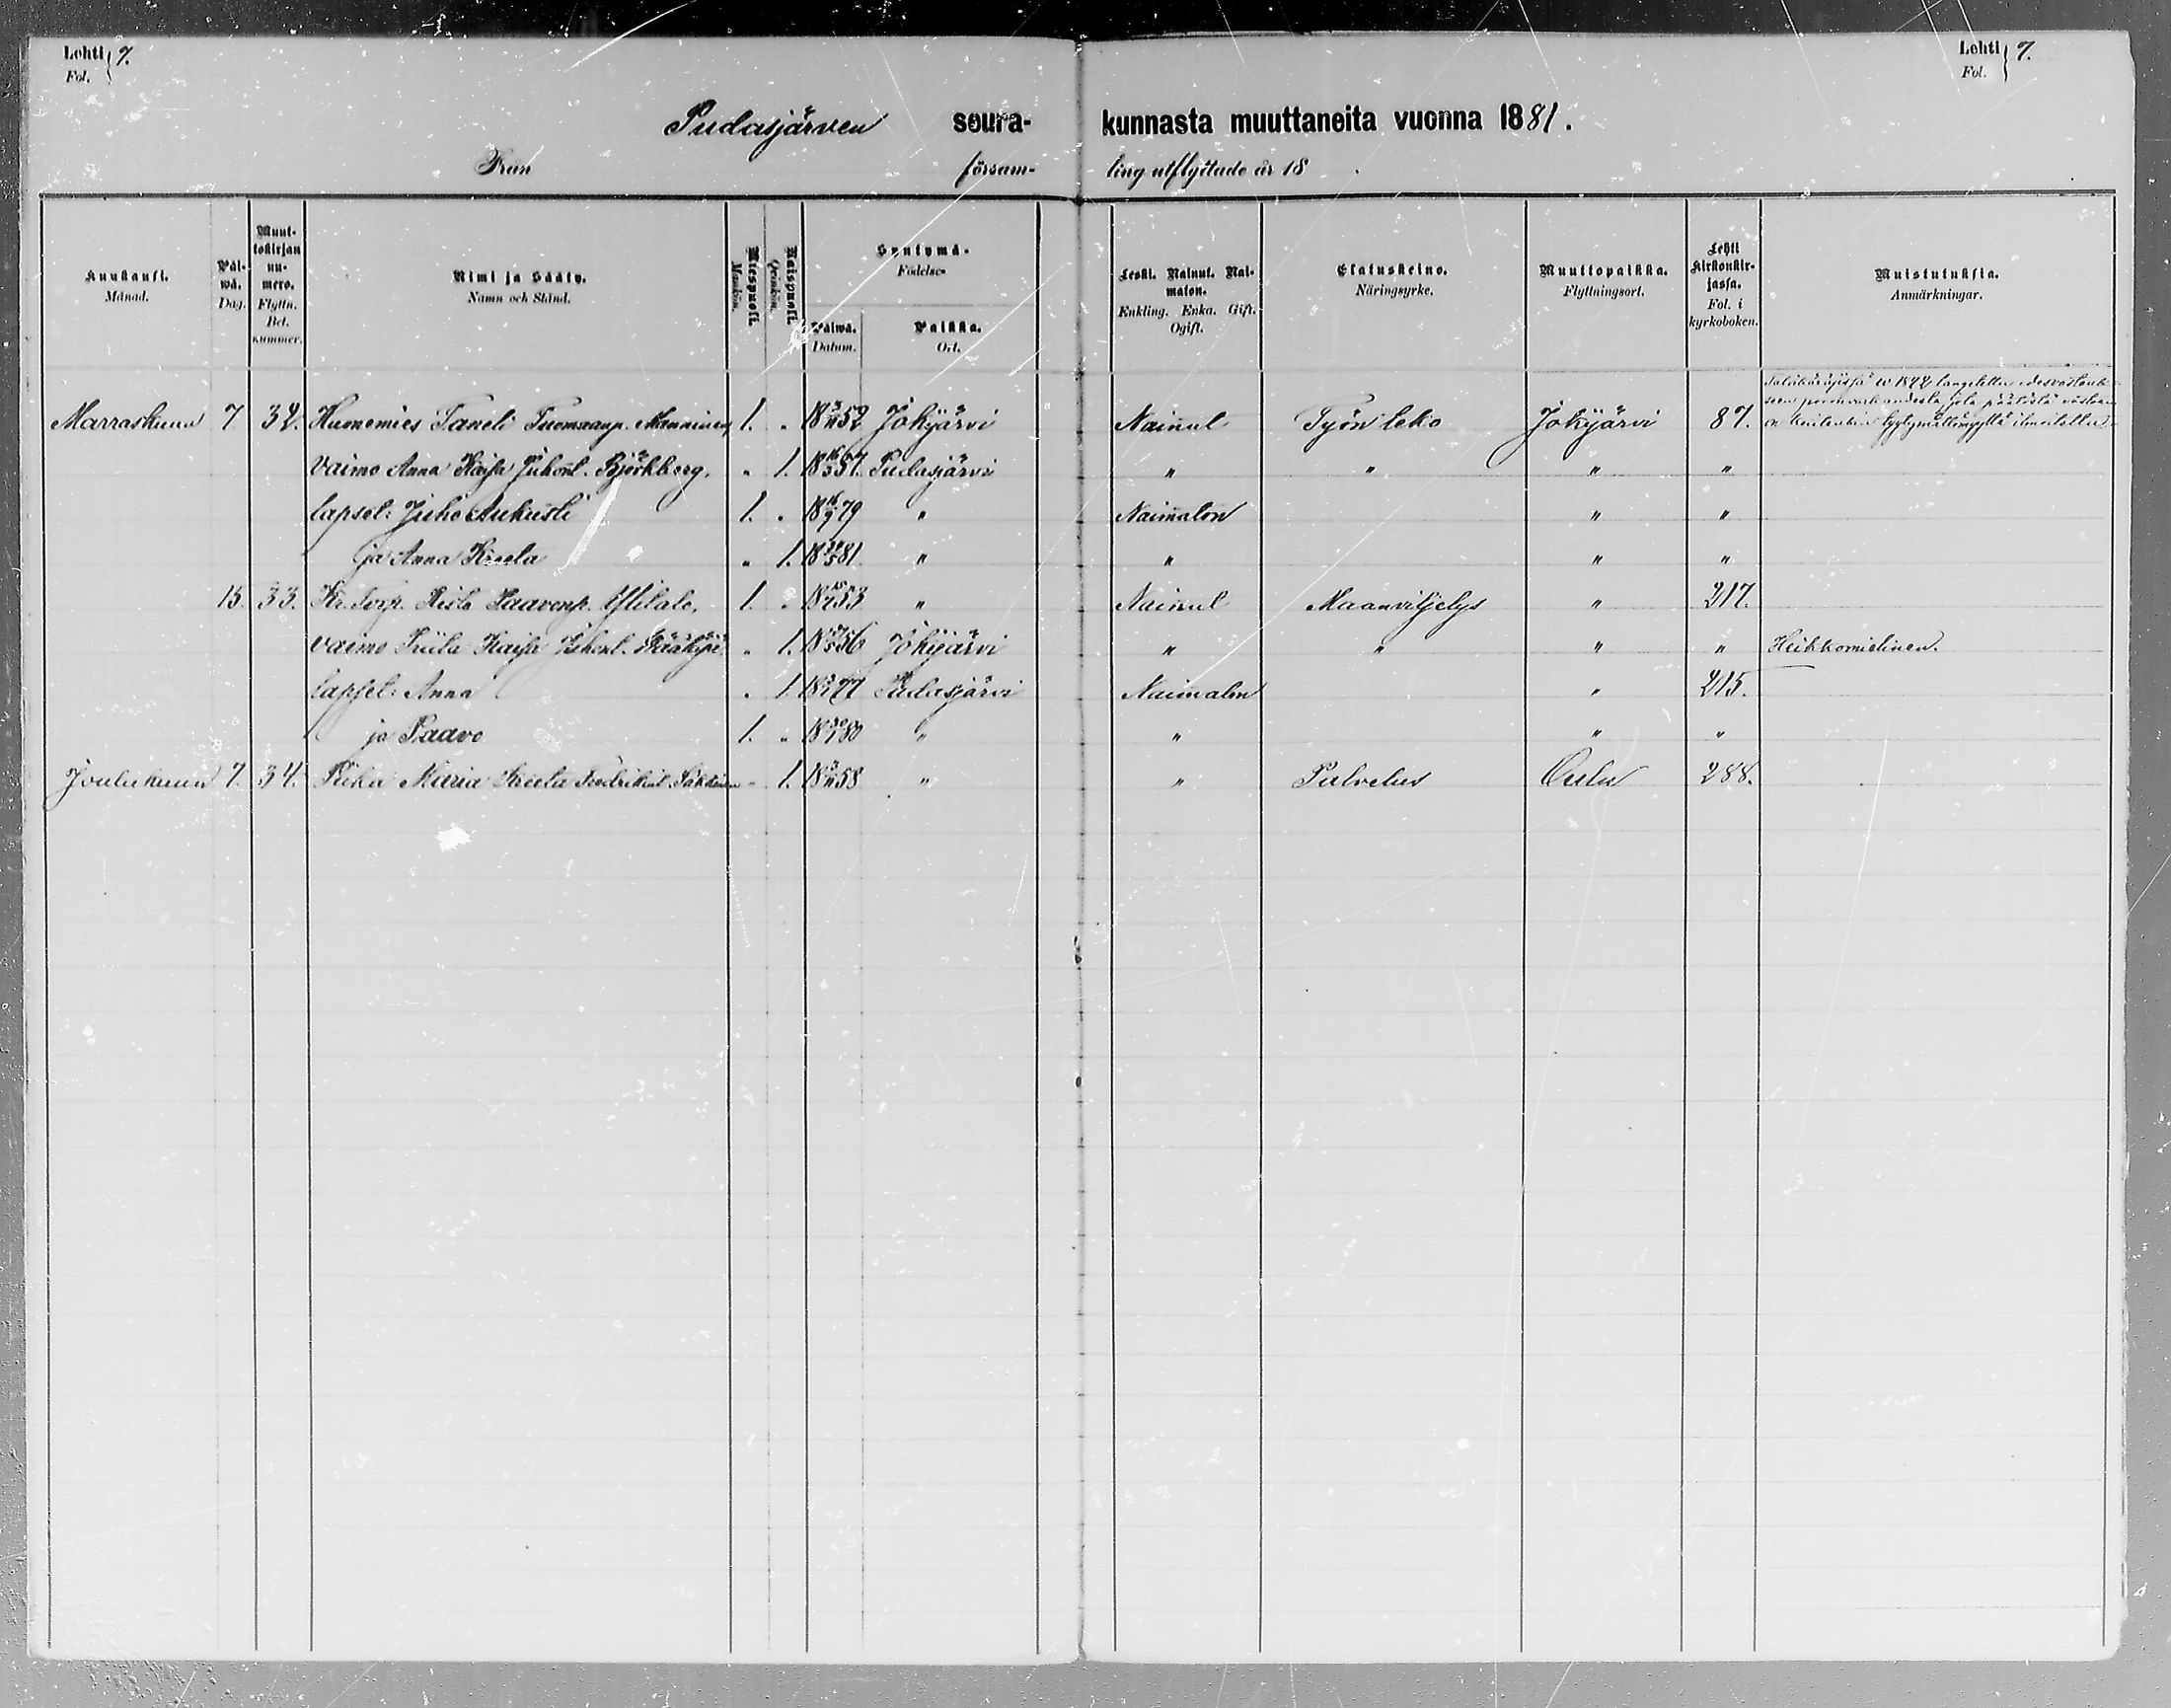 Lehti } 7.
Fol.
Lehti } 7.
Fol.
Pudasjärven seura- kunnasta muuttaneita vuonna 1881.
Från försam- ling utflyttade år 18 .
Kuukausi. Månad.
Päi-wä. Dag.
Muut-tokirjan nu-mero. Flyttn. Bet. nummer.
Nimi ja Sääty. Namn och Stånd.
Miespuoli. Mankön.
Naispuoli. Qvinkön.
Syntymä- Födelse-
Päiwä. Datum.
Paikka. Ort.
Leski. Nainut. Nai-maton. Enkling. Enka. Gift. Ogift.
Elatuskeino. Näringsyrke.
Muuttopaikka. Flyttningsort.
Lehti Kirkonkir-jassa. Fol. i kyrkoboken.
Muistutuksia. Anmärkningar.
Marraskuun 7 32. Huonemies Taneli Tuomaanp. Manninen 1. " 18 52 Jokijärvi Nainut Työn teko Jokijärvi 87.
Vaimo Anna Kaisa Juhont. Björkberg. " 1. 18 57. Pudasjärvi " " " "
lapset: Juho Aukusti 1. " 18 79 " Naimaton " "
ja Anna Kreeta " 1. 18 81. " " " "
15. 33. Kr. Torp. Paavonp. 1. " 18 53 " Nainut Maanviljelys " 217.
vaimo Kaisa Juhont. " 1. 18 56 Jokijärvi " " " " Heikkomielinen.
lapset: Anna " 1. 18 77 Pudasjärvi Naimaton " 215.
ja Paavo 1. " 18 80 " " " "
Joulukuun 7. 34. Piika Maria Kreeta Fredrikint. " 1. 18 58 " " Palvelus Oulu 288.